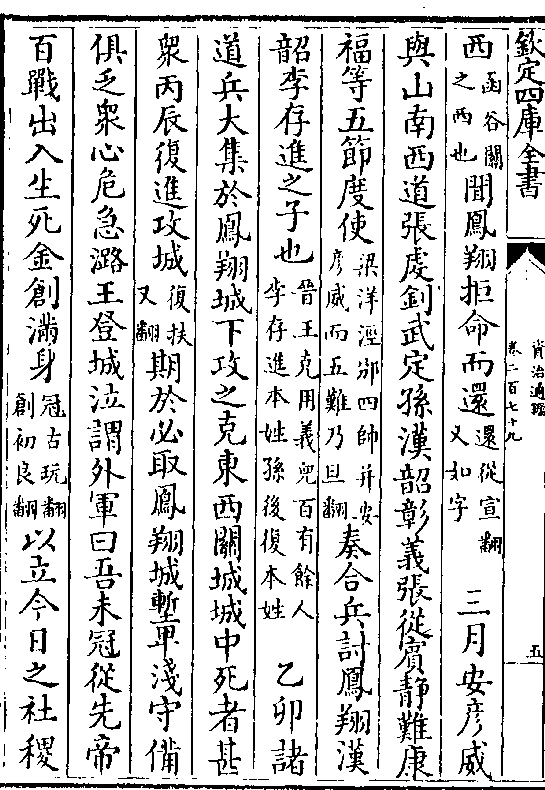 欽定四庫全書
資治通鑑
卷二百七十九
五
西函谷關之西也聞鳳翔拒命而還還從宣翻又如字 三月安彥威
與山南西道張虔釗武定孫漢韶彰義張從賓靜難康
福等五節度使梁洋涇邠四帥并安彥威而五難乃旦翻奏合兵討鳳翔漢
韶李存進之子也晉王克用義兒百有餘人李存進本姓孫後復本姓 乙卯諸
道兵大集於鳳翔城下攻之克東西關城城中死者甚
衆丙辰復進攻城復扶又翻期於必取鳳翔城塹卑淺守備
俱乏衆心危急潞王登城泣謂外軍曰吾未冠從先帝
百戰出入生死金創滿身冠古玩翻創初良翻以立今日之社稷